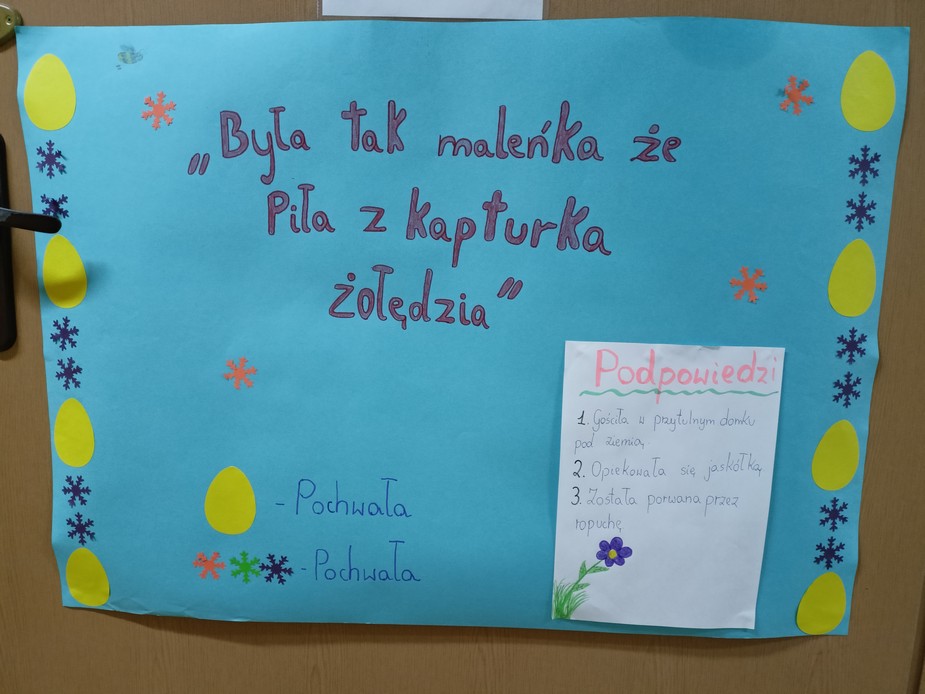 „Była tak maleńka że
Piła z kapturka
żołędzia”
Podpowiedzi
1. Gościła w przytulnym domku
pod ziemią
2. Opiekowała się jaskółką
3. Została porwana przez
ropuchę
- Pochwała
- Pochwała